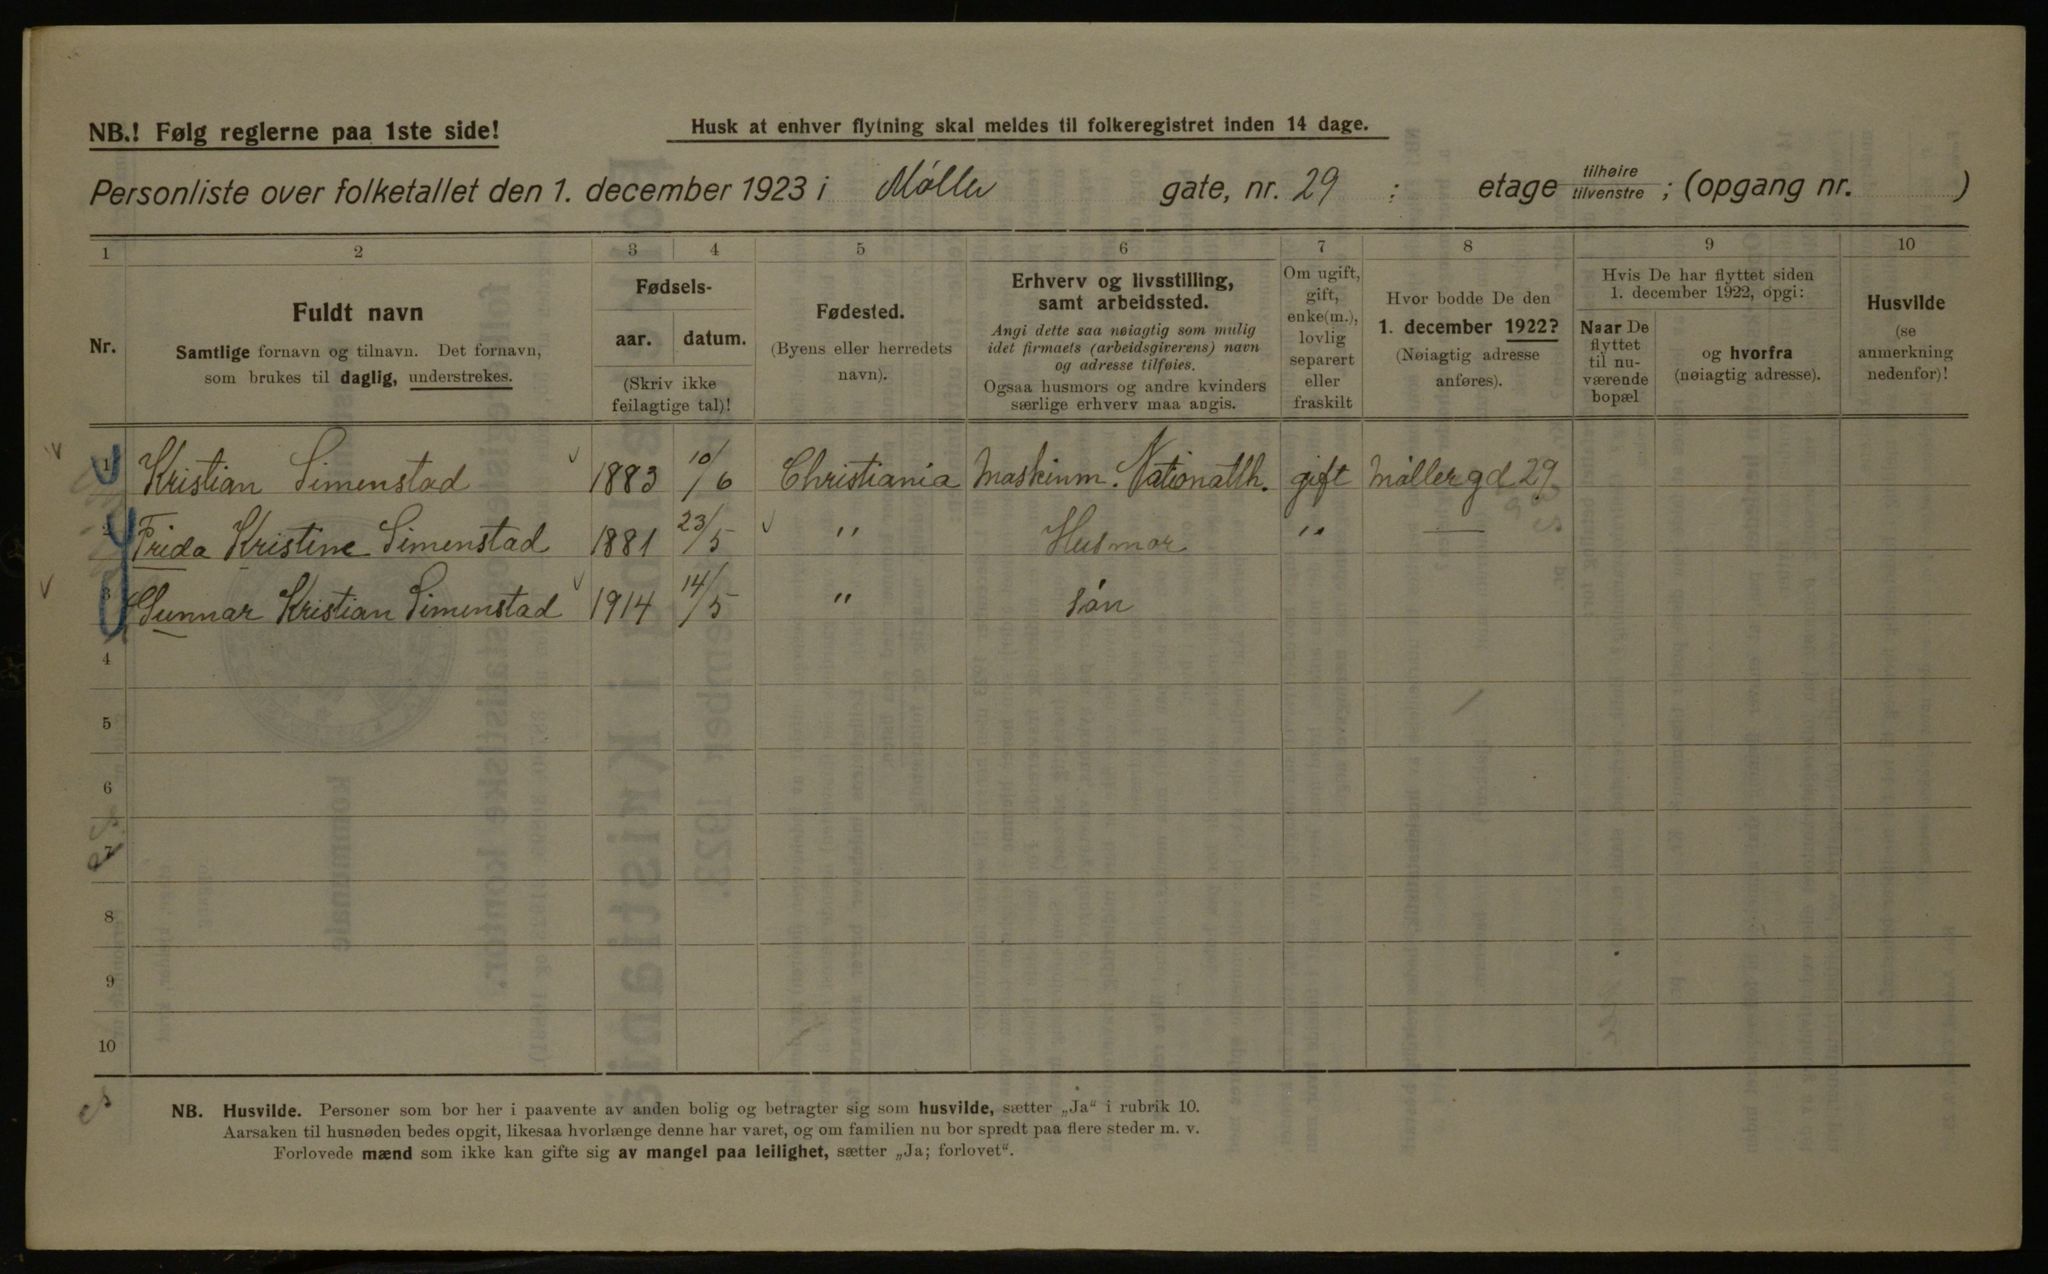 NB.! Følg reglerne paa 1ste side!
Husk at enhver flytning skal meldes til folkeregistret inden 14 dage.
Personliste over folketallet den 1. december 1923 i Møller gate, nr. 29 : etage tilhøire tilvenstre ; (opgang nr. )
1 2 3 4 5 6 7 8 9 10
Nr.
Fuldt navn
Samtlige fornavn og tilnavn. Det fornavn,
som brukes til daglig, understrekes.
Fødsels-
aar. datum.
(Skriv ikke
feilagtige tal)!
Fødested.
(Byens eller herredets
navn).
Erhverv og livsstilling,
samt arbeidssted.
Angi dette saa nøiagtig som mulig
idet firmaets (arbeidsgiverens) navn
og adresse tilføies.
Ogsaa husmors og andre kvinders
særlige erhverv maa angis.
Om ugift,
gift,
enke(m.),
lovlig
separert
eller
fraskilt
Hvor bodde De den
1. december 1922?
(Nøiagtig adresse
anføres).
Hvis De har flyttet siden
1. december 1922, opgi:
Naar De
flyttet
til nu-
værende
bopæl
og hvorfra
(nøiagtig adresse).
Husvilde
(se
anmerkning
nedenfor)!
1 Kristian Simenstad 1883 10/6 Christiania Maskinm. Nationalth. gift Møllergd 29
2 Frida Kristine Simenstad 1881 23/5 " Husmor " —
3 Gunnar Kristian Simenstad 1914 14/5 " søn
4
5
6
7
8
9
10
NB. Husvilde. Personer som bor her i paavente av anden bolig og betragter sig som husvilde, sætter „Ja“ i rubrik 10.
Aarsaken til husnøden bedes opgit, likesaa hvorlænge denne har varet, og om familien nu bor spredt paa flere steder m. v.
Forlovede mænd som ikke kan gifte sig av mangel paa leilighet, sætter „Ja; forlovet“.